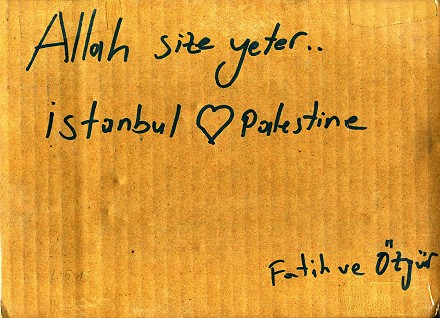 Allah size yeter..
istanbul ♡ Palestine
Fatih ve Özgür